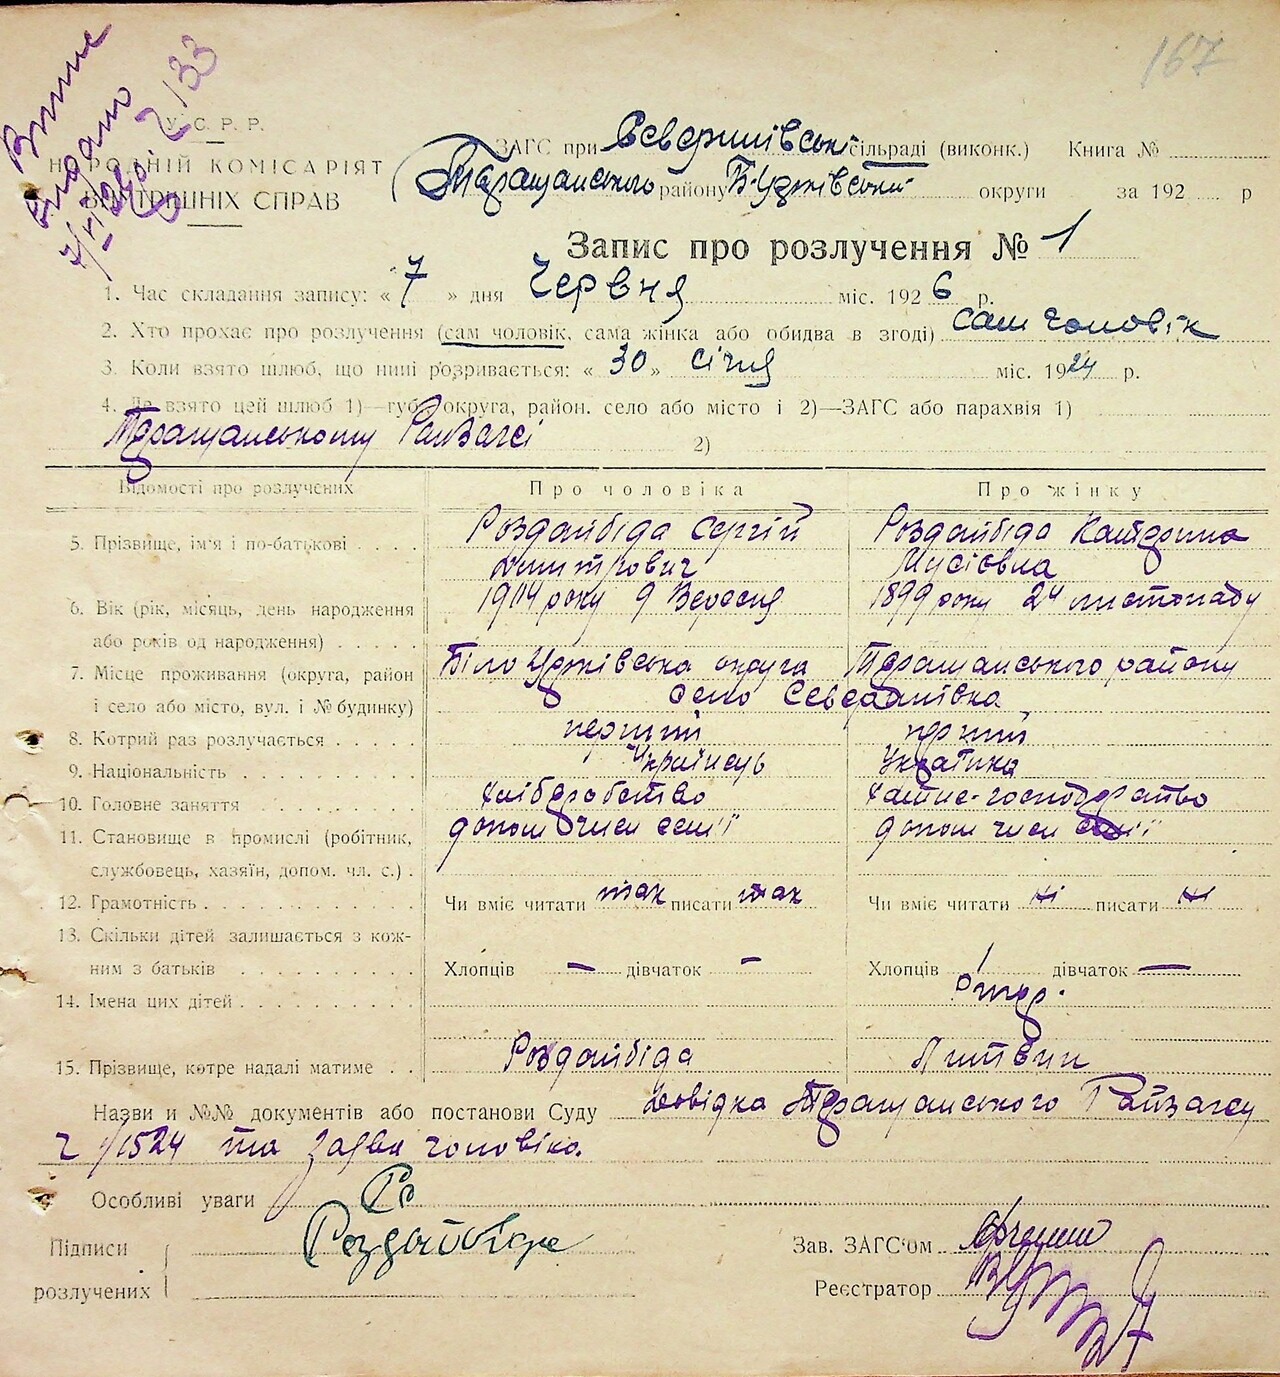 167
Витяг
видано
7/VI 26 р. № 133
У. С. Р. Р.
НАРОДНІЙ КОМІСАРІЯТ
ВНУТРІШНІХ СПРАВ
ЗАГС при сільраді (виконк.) Книга №
Таращанського району Б-Церківської округи за 192 р
Запис про розлучення № 1
1. Час складання запису: « 7 » дня Червня міс. 1926 р.
2. Хто прохає про розлучення (сам чоловік, сама жінка або обидва в згоді) сам чоловік
3. Коли взято шлюб, що нині розривається: « 30 » Січня міс. 1924 р.
4. Де взято цей шлюб 1)—губ. округа, район. село або місто і 2)—ЗАГС або парахвія 1)
Таращанському Райзагсі 2)
Відомості про розлучених Про чоловіка Про жінку
5. Прізвище, ім'я і по-батькові Роздайбіда Сергій Роздайбіда Катерина
Дмитрович Мусіївна
6. Вік (рік, місяць, день народження 1904 року 9 Вересня 1899 року 24 листопаду
або років од народження)
7. Місце проживання (округа, район Біло Церківська округа Таращанського району
і село або місто, вул. і № будинку) село
8. Котрий раз розлучається перший перший
9. Національність Українець Українка
10. Головне заняття хліборобство хатнє-господарство
11. Становище в промислі (робітник, допом член семї допом член семї
службовець, хазяїн, допом. чл. с.)
12. Грамотність Чи вміє читати так писати так Чи вміє читати ні писати ні
13. Скільки дітей залишається з кож-
ним з батьків Хлопців — дівчаток — Хлопців 1 дівчаток —
14. Імена цих дітей
15. Прізвище, котре надалі матиме Роздайбіда Литвин
Назви и №№ документів або постанови Суду Довідка Таращанського Райзагсу
ч 1/1524 та заява чоловіка.
Особливі уваги
Підписи Роздайбіда Зав. ЗАГС'ом
розлучених Реєстратор